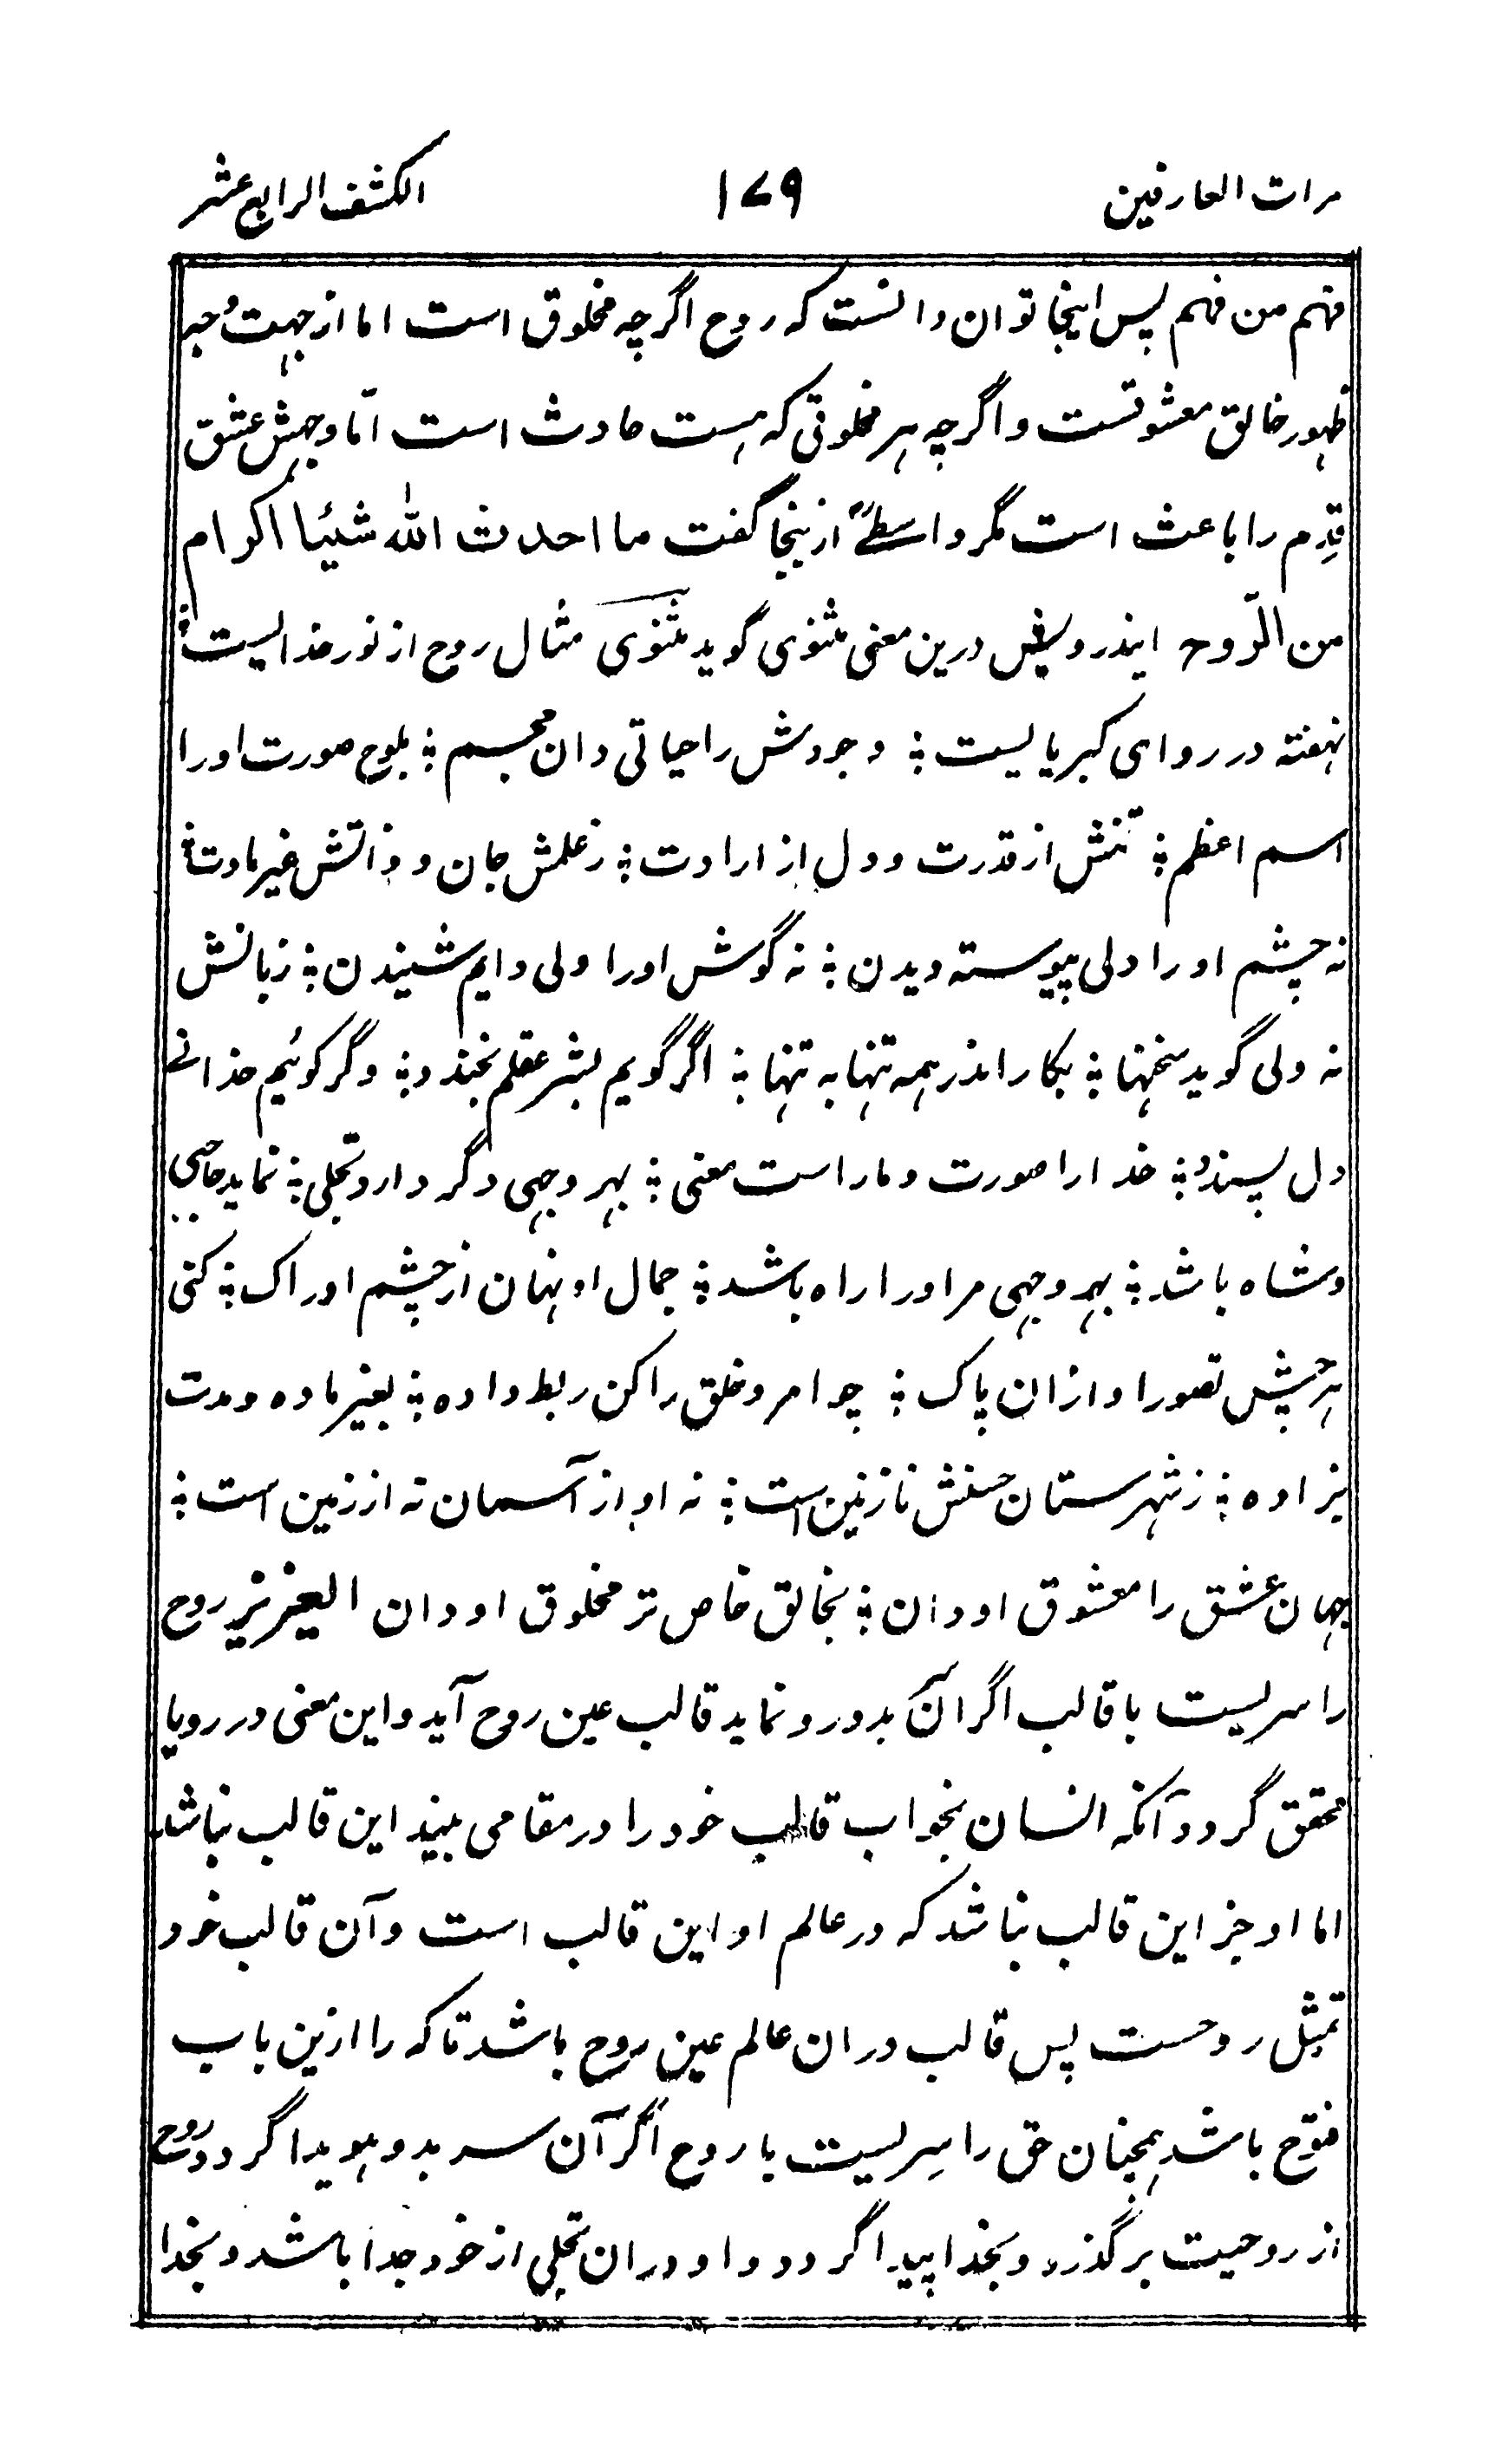 مرات العارفین ۱۷۹ الکشف الرابع عشر
فهم من فهم پس اینجا توان دانست که روح اگرچه مخلوق است اما از جهت وجه
ظهور خالق معشوقست و اگرچه هر مخلوقی که هست حادث است امّا وجهش عشق
قِدم را باعث است مگر واسطۂ ازینجا گفت ما احدث اللّٰه شیئا اکرام
من الرّوح ایندرویش درین معنی مثنوی گوید مثنوی مثال روح از نور خدالیست ؛
نهفته در روای کبریالیست ؛ وجودش را حیاتی دان مجسم ؛ بلوح صورت او را
اسم اعظم ؛ تنش از قدرت و دل از ارادت ؛ ز علمش جان و ذاتش غیر مادت ؛
نه چشم او را ولی پیوسته دیدن ؛ نه گوش او را ولی دایم شنیدن ؛ زبانش
نه ولی گوید سخنها ؛ بکار اندر همه تنها به تنها ؛ اگر گویم بشر عقلم بخندد ؛ وگر گوئیم خدا نے
دل پسندد ؛ خدا را صورت و ما راست معنی ؛ بهر وجهی دگر دارد تجلی ؛ نماید حاجبی
و شاه باشد ؛ بهر وجهی مر او را راه باشد ؛ جمال او نهان از چشم ادراک ؛ کنی
هر چپش تصور او ازان پاک ؛ چو امر و خلق را کن ربط داده ؛ بغیر ماده و مدت
بزاده ؛ ز شهرستان حسنش نازنین است ؛ نه او از آسمان نه از زمین است ؛
جهان عشق را معشوق او دان ؛ بخالق خاص تر مخلوق او دان العزیز روح
را سریست با قالب اگر آن بدو رو نماید قالب عین روح آید و این معنی در رویا
محقق گردد آنکه انسان بخواب قالب خود را در مقامی بیند این قالب نباشد
اما او جز این قالب نباشد که در عالم او این قالب است و آن قالب خود
تمثل روحست پس قالب دران عالم عین روح باشد تا که را ازین باب
فتوح باشد همچنان حق را سِریست با روح اگر آن سر بدو هویدا گردد روح
از روحیت برگذرد و بخدا پیدا گردد و او دران تجلی از خود جدا باشد و بخدا